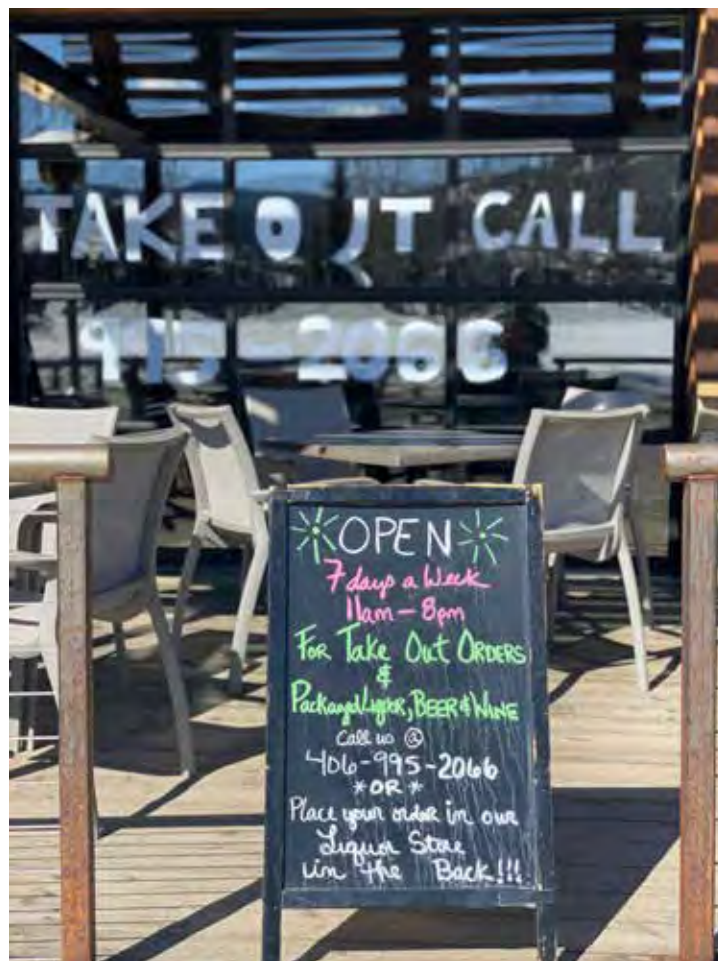 TAKE OUT CALL
995-2066
OPEN
7 days a Week
11am - 8pm
FOR Take Out ORDERS
&
Packaged Liquor, BEER & WINE
Call us @
406-995-2066
*OR*
Place your order in our
Liquor Store
in the Back!!!